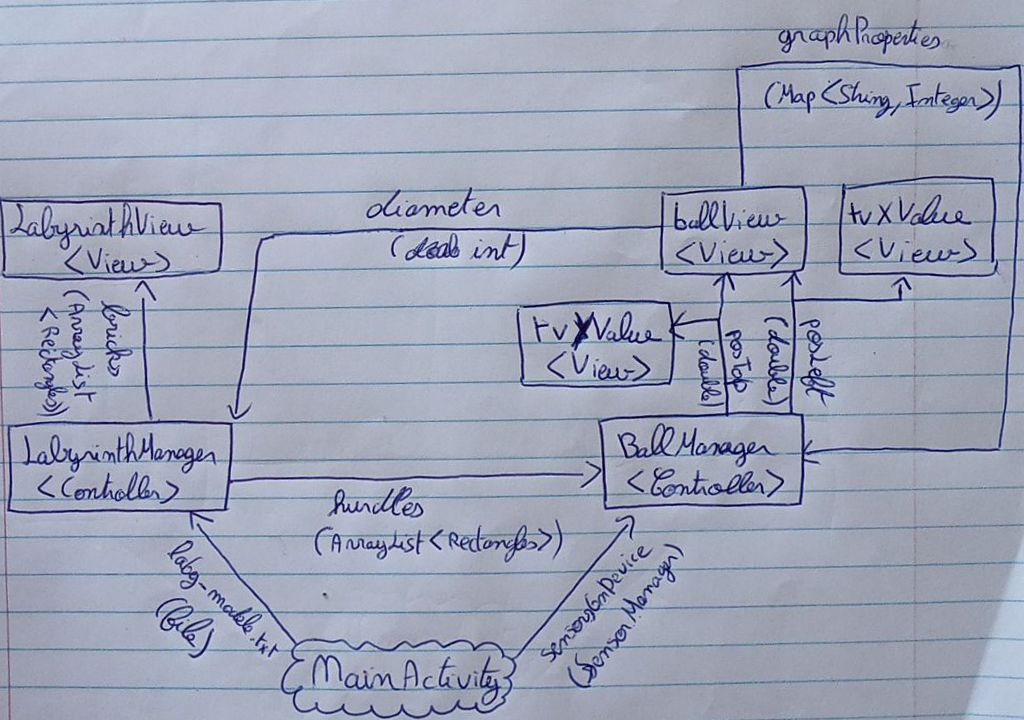 graphProperties
(Map <String, Integer>)
diameter
(int)
LabyrinthView
<View>
ballView
<View>
tvXValue
<View>
bricks
(ArrayList
<Rectangles>)
tvYValue
<View>
posTop
(double)
posLeft
(double)
LabyrinthManager
<Controller>
BallManager
<Controller>
hurdles
(ArrayList <Rectangles>)
laby-modele.txt
(file)
sensorsOnDevice
(SensorManager)
MainActivity